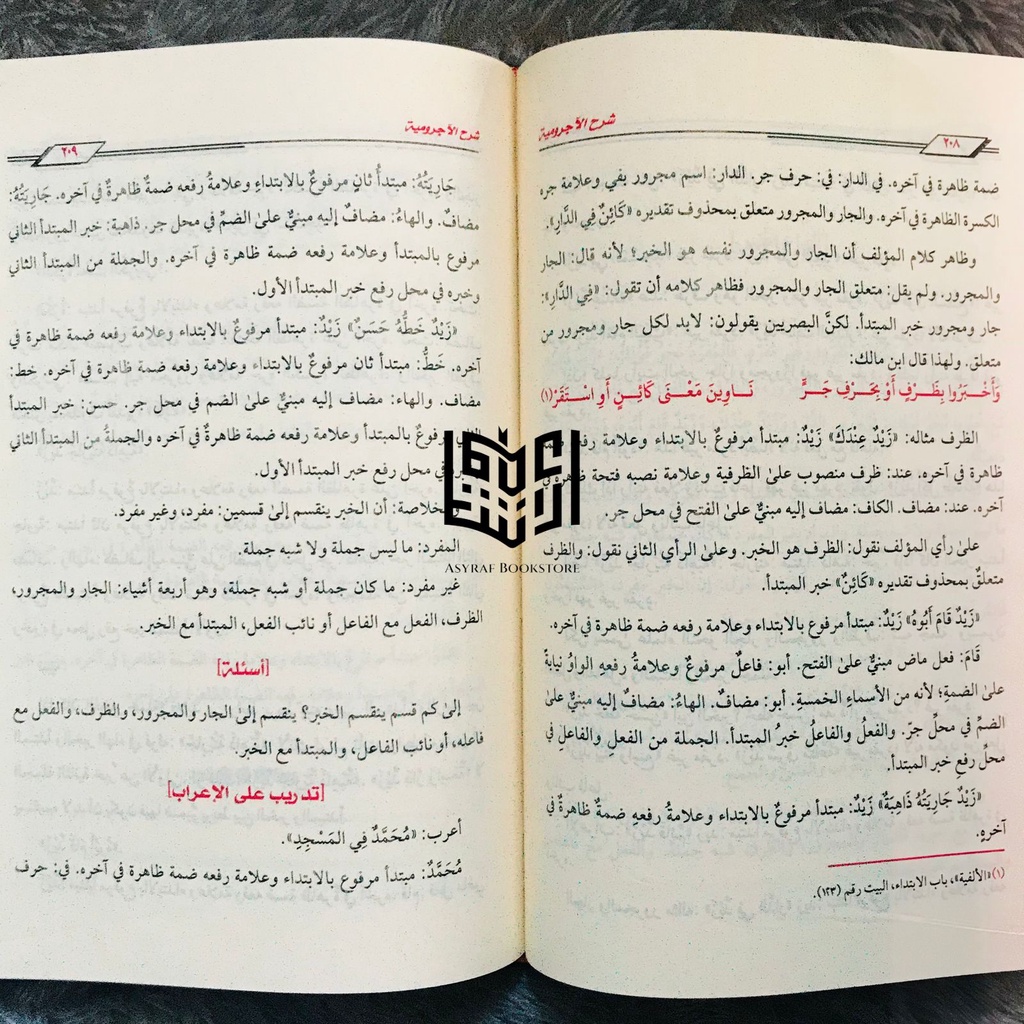 شرح الآجرومية
٢٠٨
ضمة ظاهرة في آخره. في الدار: في: حرف جر. الدار: اسم مجرور بفي وعلامة جره
الكسرة الظاهرة في آخره. والجار والمجرور متعلق بمحذوف تقديره «كَائِنٌ فِي الدَّارِ».
وظاهر كلام المؤلف أن الجار والمجرور نفسه هو الخبر؛ لأنه قال: الجار
والمجرور. ولم يقل: متعلق الجار والمجرور فظاهر كلامه أن تقول: «فِي الدَّارِ»:
جار ومجرور خبر المبتدأ. لكنَّ البصريين يقولون: لابد لكل جار ومجرور من
متعلق. ولهذا قال ابن مالك:
وَأَخْبَرُوا بِظَرْفٍ أَوْ بِحَرْفِ جَرٍّ نَاوِينَ مَعْنَى كَائِنٍ أَوِ اسْتَقَرْ(١)
الظرف مثاله: «زَيْدٌ عِنْدَكَ» زَيْدٌ: مبتدأ مرفوعٌ بالابتداء وعلامة رفعه ضمة
ظاهرة في آخره. عند: ظرف منصوب على الظرفية وعلامة نصبه فتحة ظاهرة في
آخره. عند: مضاف. الكاف: مضاف إليه مبنيٌّ على الفتح في محل جر.
على رأي المؤلف نقول: الظرف هو الخبر. وعلى الرأي الثاني نقول: والظرف
متعلقٌ بمحذوف تقديره «كَائِنٌ» خبر المبتدأ.
«زَيْدٌ قَامَ أَبُوهُ» زَيْدٌ: مبتدأ مرفوع بالابتداء وعلامة رفعه ضمة ظاهرة في آخره.
قَامَ: فعل ماض مبنيٌّ على الفتح. أبو: فاعلٌ مرفوعٌ وعلامةُ رفعهِ الواوُ نيابةً
على الضمةِ؛ لأنه من الأسماءِ الخمسةِ. أبو: مضافٌ. الهاءُ: مضافٌ إليه مبنيٌّ على
الضمِّ في محلِّ جرّ. والفعلُ والفاعلُ خبرُ المبتدأ. الجملة من الفعلِ والفاعلِ في
محلِّ رفعِ خبر المبتدأ.
«زَيْدٌ جَارِيَتُهُ ذَاهِبَةٌ» زَيْدٌ: مبتدأ مرفوعٌ بالابتداء وعلامةُ رفعهِ ضمةٌ ظاهرةٌ في
آخرهِ.
(١) «الألفية»، باب الابتداء، البيت رقم (١٢٣).
شرح الآجرومية
٢٠٩
جَارِيَتُهُ: مبتدأٌ ثانٍ مرفوعٌ بالابتداءِ وعلامةُ رفعه ضمةٌ ظاهرةٌ في آخره. جَارِيَتُهُ:
مضافٌ. والهاءُ: مضافٌ إليه مبنيٌّ على الضمِّ في محل جر. ذاهبة: خبر المبتدأ الثاني
مرفوع بالمبتدأ وعلامة رفعه ضمة ظاهرة في آخره. والجملة من المبتدأ الثاني
وخبره في محل رفع خبر المبتدأ الأول.
«زَيْدٌ خَطُّهُ حَسَنٌ» زَيْدٌ: مبتدأ مرفوعٌ بالابتداء وعلامة رفعه ضمة ظاهرة في
آخره. خَطُّ: مبتدأ ثان مرفوعٌ بالابتداء وعلامة رفعه ضمة ظاهرة في آخره. خط:
مضاف. والهاء: مضاف إليه مبنيٌّ على الضم في محل جر. حسن: خبر المبتدأ
الثاني مرفوعٌ بالمبتدأ وعلامة رفعه ضمة ظاهرةٌ في آخره والجملةُ من المبتدأ الثاني
وخبره في محل رفع خبر المبتدأ الأول.
والخلاصة: أن الخبر ينقسم إلى قسمين: مفرد، وغير مفرد.
المفرد: ما ليس جملة ولا شبه جملة.
غير مفرد: ما كان جملة أو شبه جملة، وهو أربعة أشياء: الجار والمجرور،
الظرف، الفعل مع الفاعل أو نائب الفعل، المبتدأ مع الخبر.
[أسئلة]
إلى كم قسم ينقسم الخبر؟ ينقسم إلى الجار والمجرور، والظرف، والفعل مع
فاعله، أو نائب الفاعل، والمبتدأ مع الخبر.
[تدريب على الإعراب]
أعرب: «مُحَمَّدٌ فِي المَسْجِدِ».
مُحَمَّدٌ: مبتدأ مرفوع بالابتداء وعلامة رفعه ضمة ظاهرة في آخره. في: حرف
ASYRAF BOOKSTORE